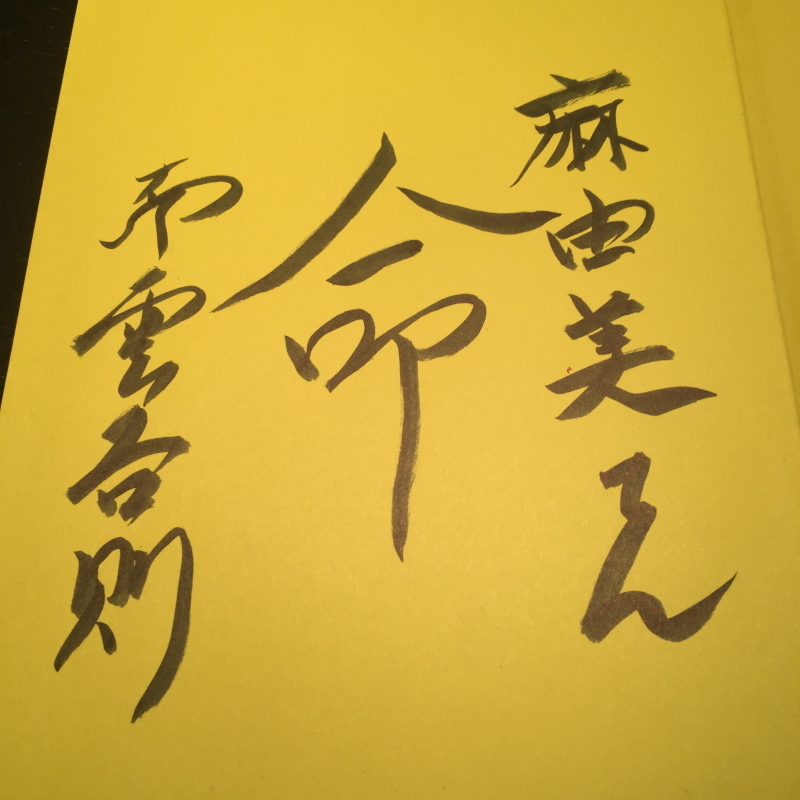 麻由美さん
命
南雲吉則